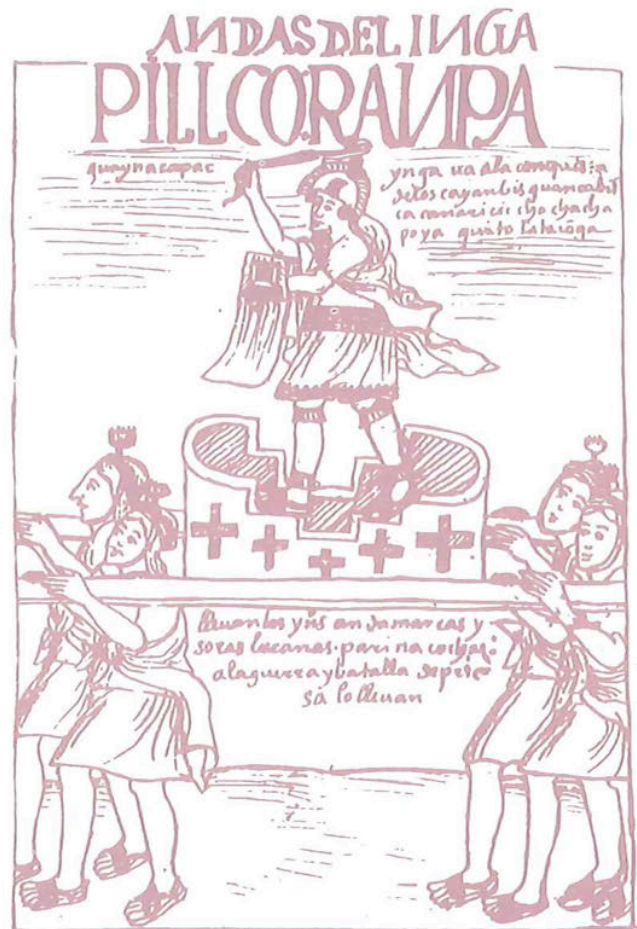 ANDAS DEL INGA
PILLCORANPA
guaynacapac
ynga ua a la conquista
de los cayanbis guancabil
ca canari ciccho chacha
poya quito lataconga
lleuan los yns andamarcas y
soras lucanas parinacochas
a la guerra y batalla de prie
sa lo lleuan